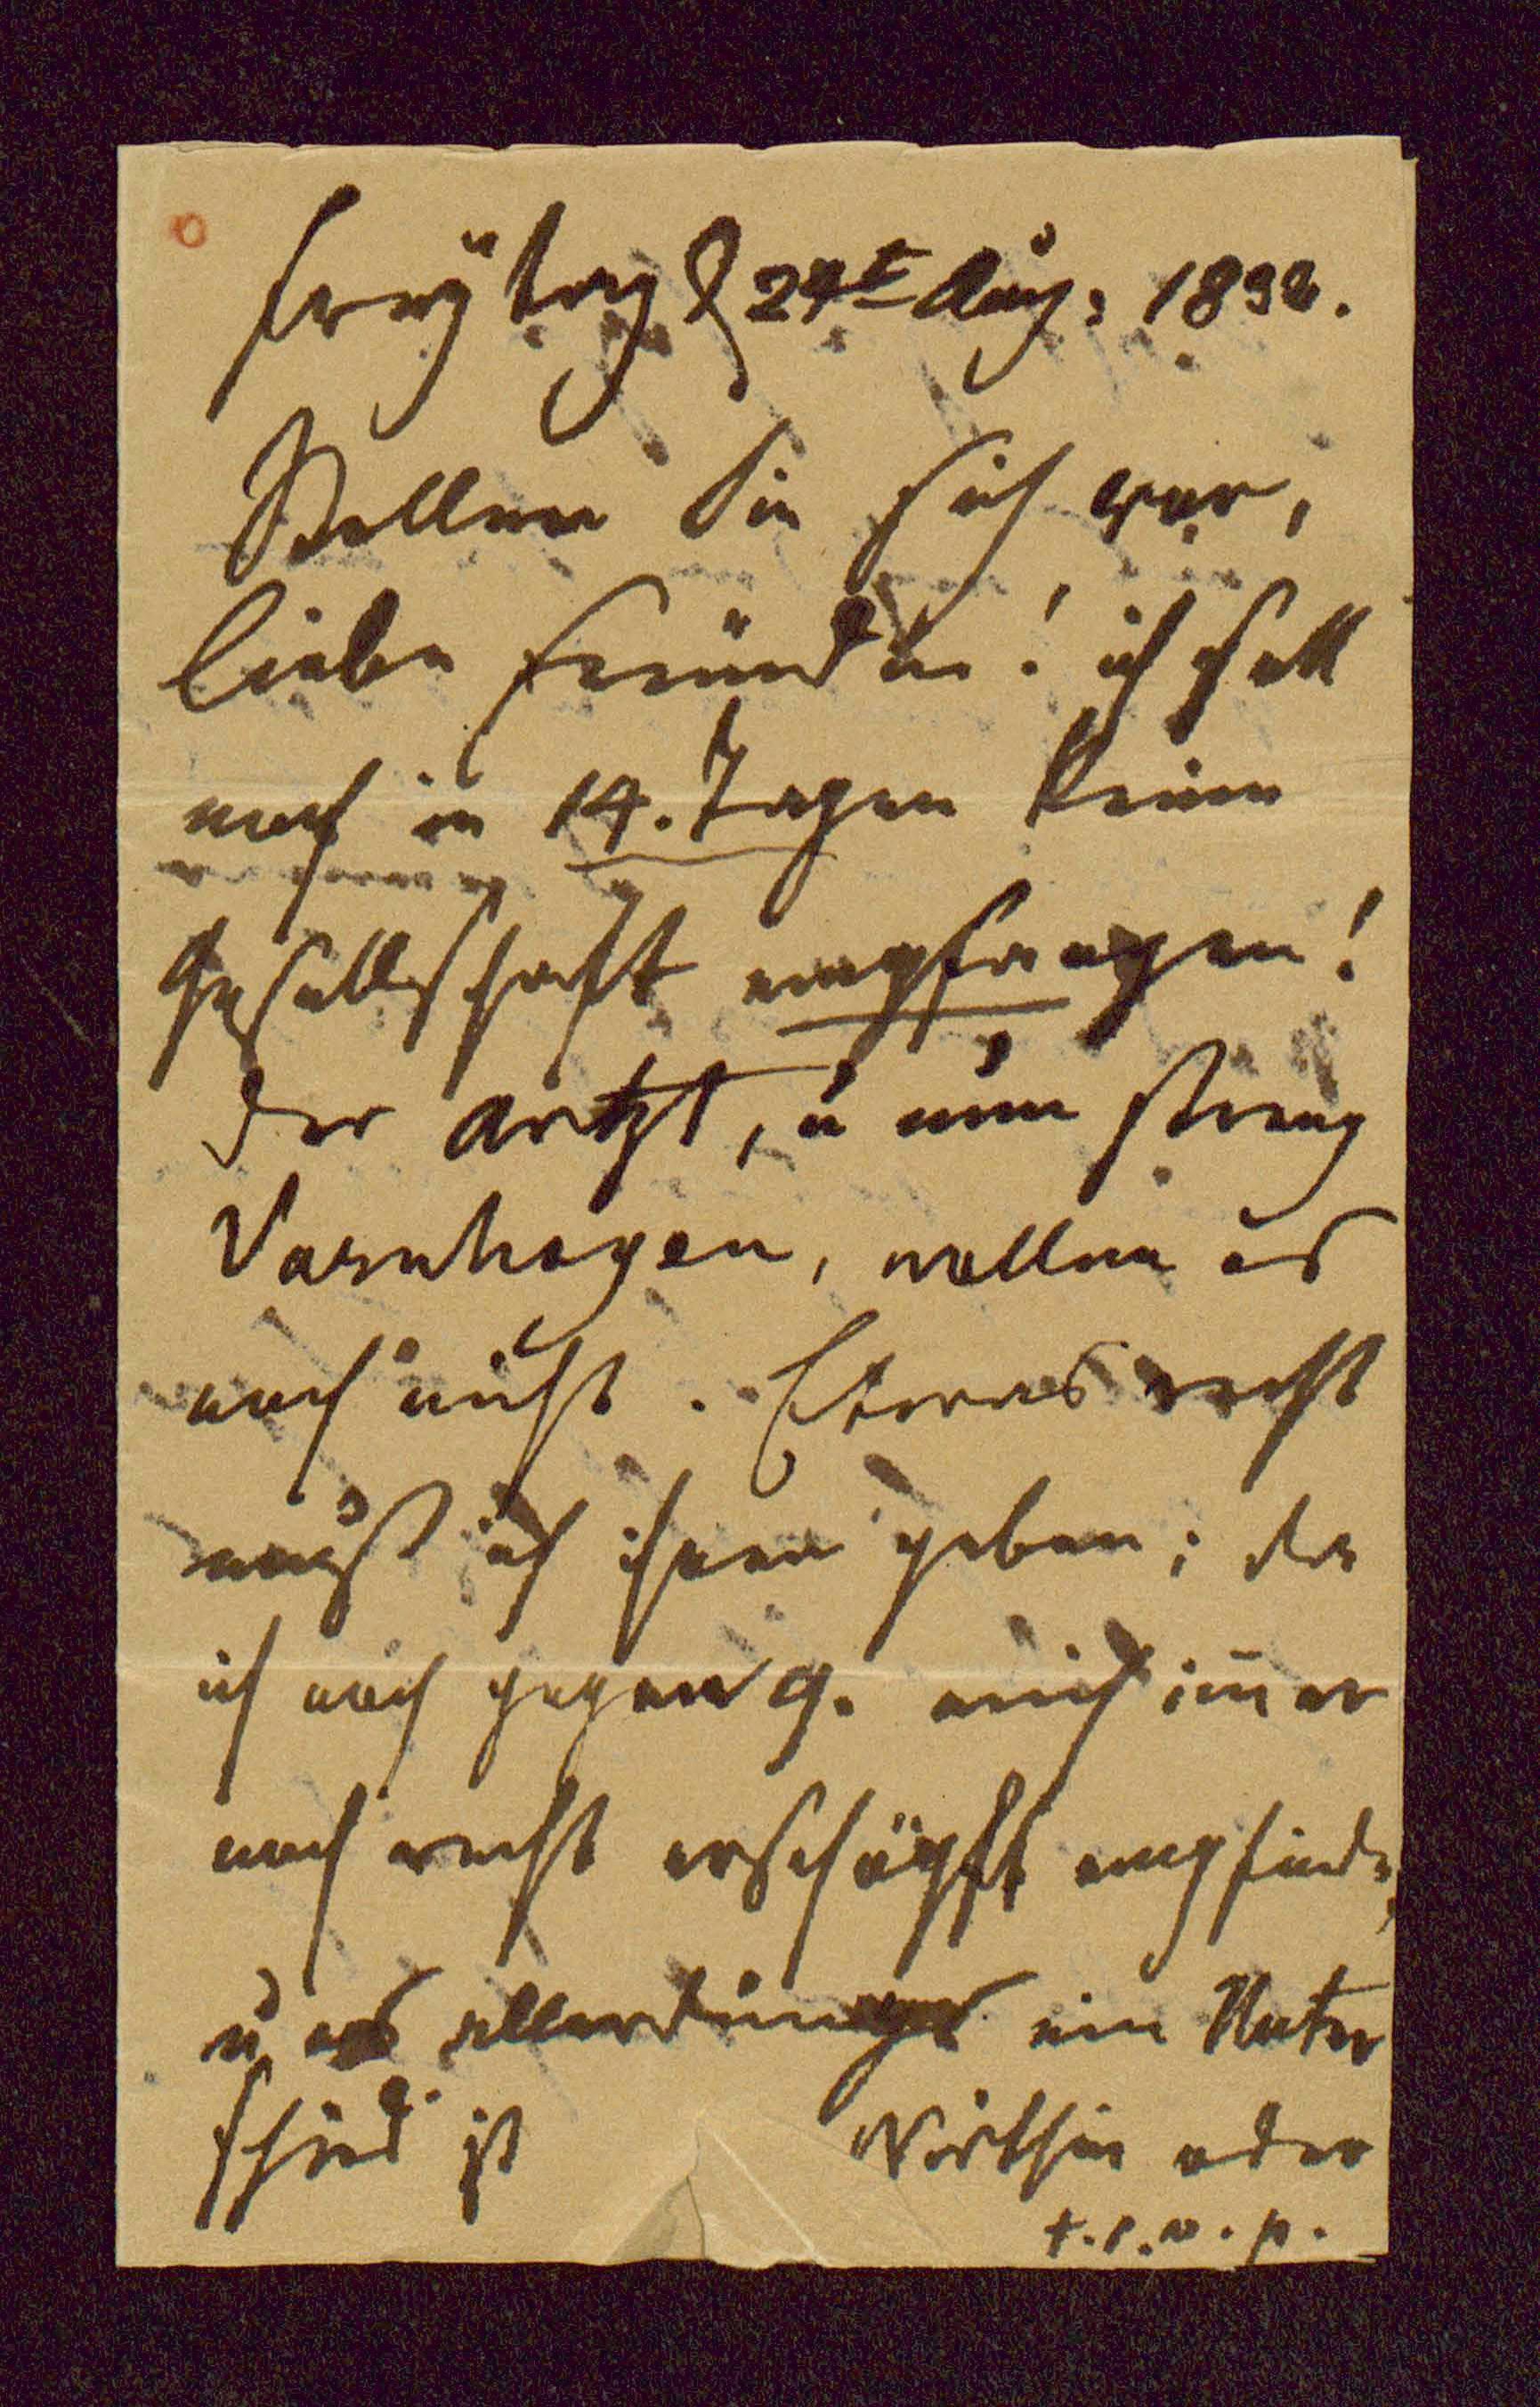 Freÿtag d 24t Aug: 1832.
Stellen Sie sich vor,
liebe Freündin! ich soll
noch in 14. Tagen keine
Gesellschaft empfangen!
der artzt, u nun streng
Varnhagen, wollen es
noch nicht. Etwas recht
muß ich ihnen geben; da
ich noch gegen 9. mich im̄er
noch recht erschöpft empfinde,
u es allerdings ein Unter
schied ist Wirthin oder
t.s.v.p.